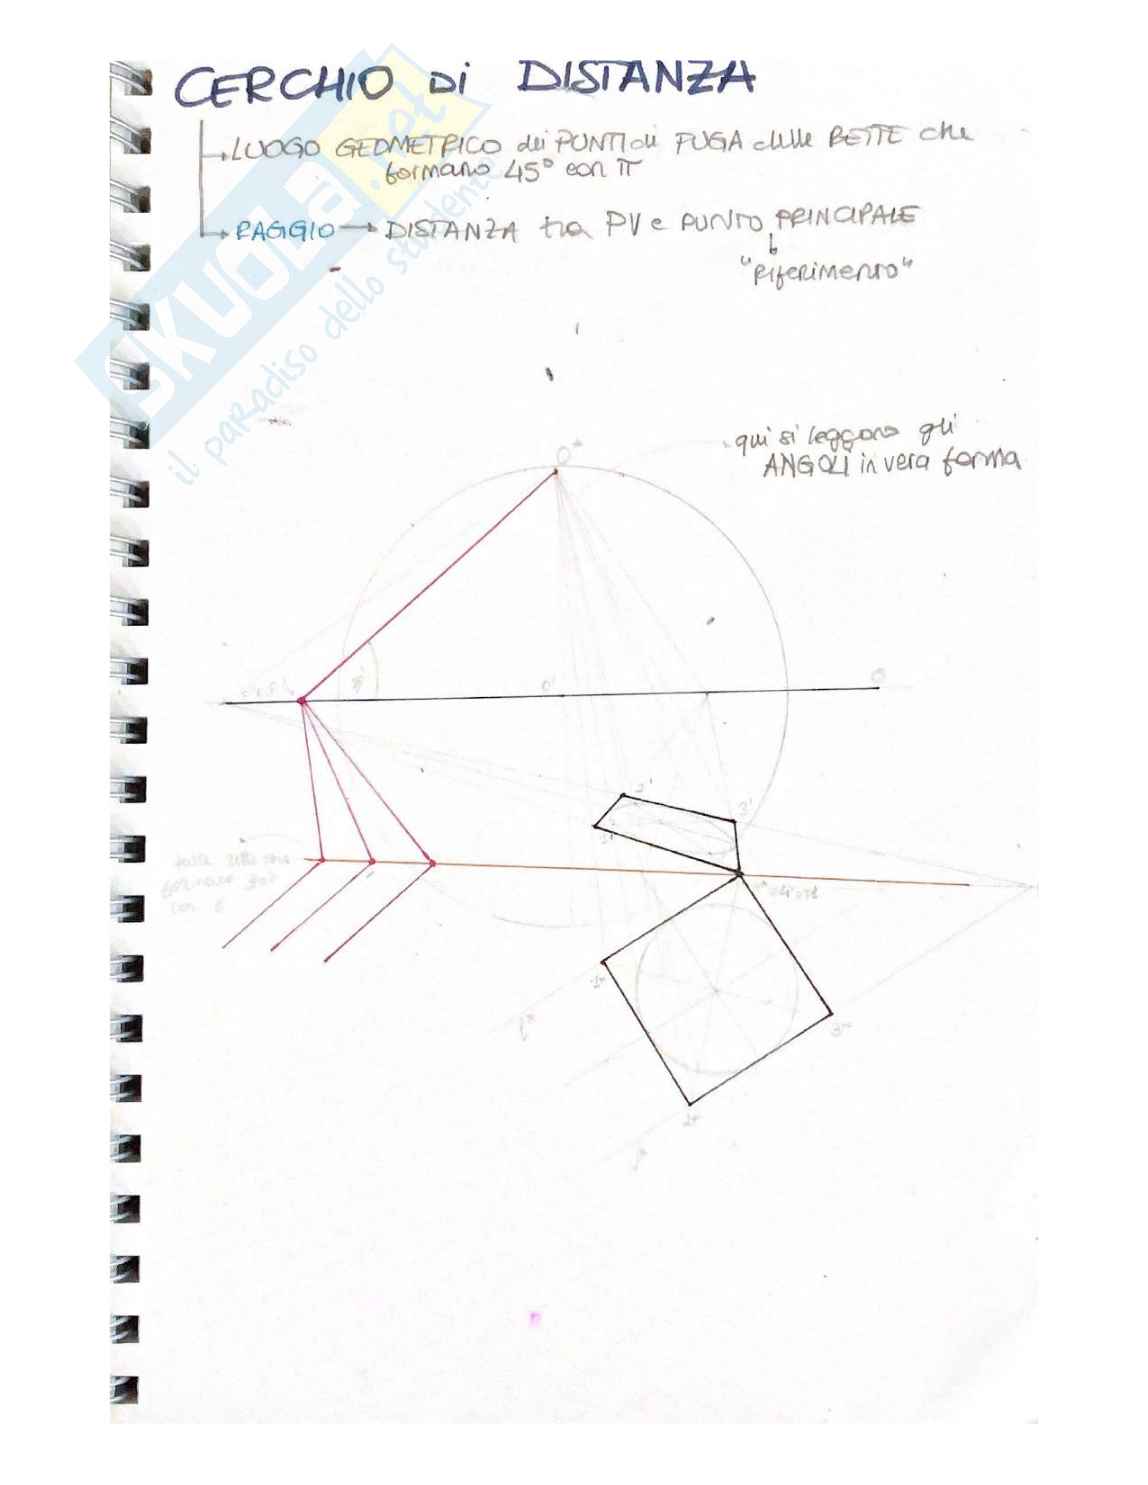 CERCHIO di DISTANZA
LUOGO GEOMETRICO dei PUNTI di FUGA delle RETTE che
formano 45° con π
RAGGIO → DISTANZA tra PV e PUNTO PRINCIPALE
"Riferimento"
SKUOLA.net
il paradiso dello studente
O*
qui si leggono gli
ANGOLI in vera forma
O'
2'
3'
1*
3*
2*